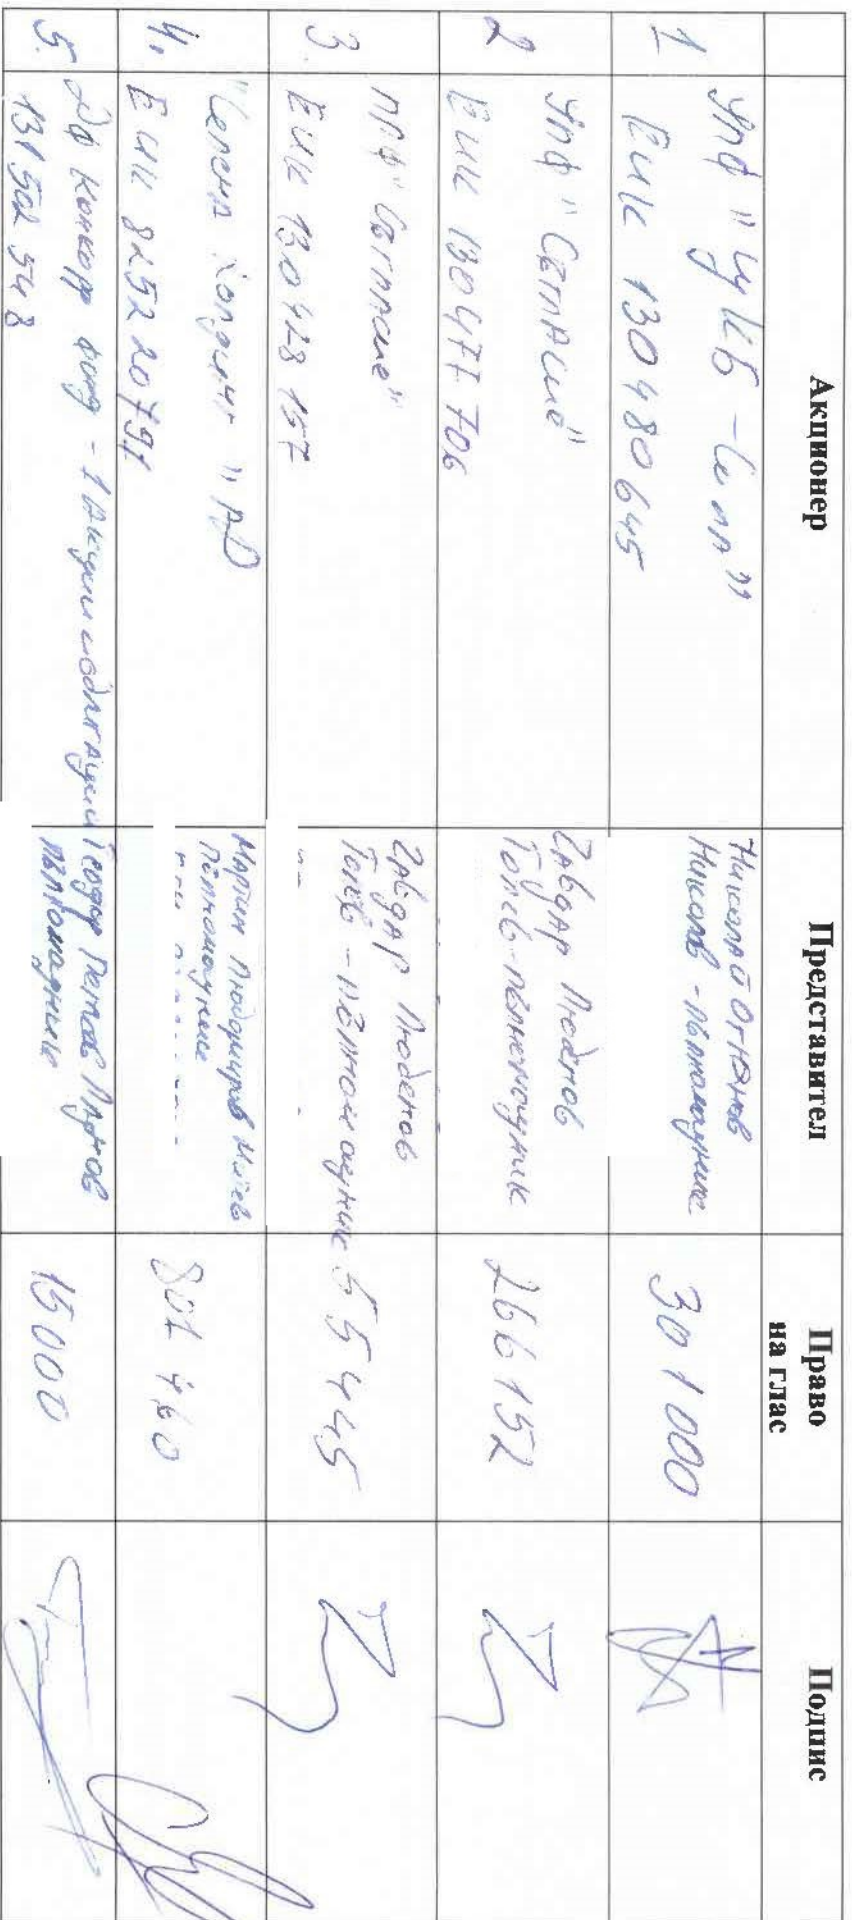 Акционер Представител Право на глас Подпис
1 УПФ "ЦКБ - Сила"
ЕИК 130480645
Николай Огнянов
Николов - пълномощник
301000
2 УПФ "Съгласие"
ЕИК 130477706
Гавдар Любенов
Голев - пълномощник
266152
3. ППФ "Съгласие"
ЕИК 130428157
Любенов
Голев - пълномощник
55445
4. "Холдинг" АД
ЕИК 825220791
Мартин Людмиров
пълномощник
807460
5. ДФ Конкорд фонд - 1 Акции и облигации
131502548
Теодор Петков
пълномощник
15000